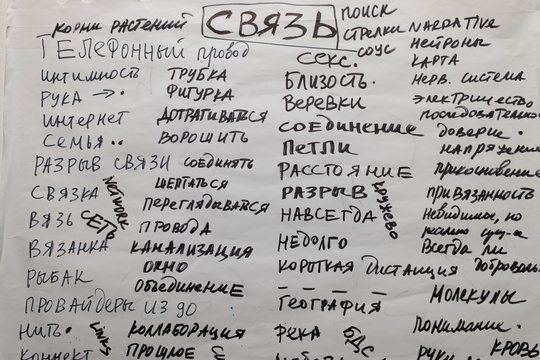 СВЯЗЬ
КОРНИ РАСТЕНИЙ
ТЕЛЕФОННЫЙ провод
ИНТИМНОСТЬ
РУКА →.
ИНТЕРНЕТ
СЕМЬЯ ..
РАЗРЫВ СВЯЗИ
СВЯЗКА
NETWORK
ВЯЗЬ
СЕТЬ
ВЯЗАНКА
РЫБАК
ПРОВАЙДЕРЫ ИЗ 90
НИТЬ.
LINKS
КОННЕКТ
ТРУБКА
ФИГУРКА
ДОТРАГИВАТЬСЯ
ВОРОШИТЬ
СОЕДИНЯТЬ
ШЕПТАТЬСЯ
ПЕРЕГЛЯДЫВАТЬСЯ
ПРОВОДА
КАНАЛИЗАЦИЯ
ОКНО
ОБЪЕДИНЕНИЕ
КОЛЛАБОРАЦИЯ
ПРОШЛОЕ
ПОИСК
СТРЕЛКИ
СОУС
СЕКС.
БЛИЗОСТЬ.
ВЕРЕВКИ
СОЕДИНЕНИЕ
ПЕТЛИ
РАССТОЯНИЕ
РАЗРЫВ
КРУЖЕВО
НАВСЕГДА
НЕДОЛГО
КОРОТКАЯ ДИСТАНЦИЯ
ГЕОГРАФИЯ
РЕКА
БДС
NARRATIVE
НЕЙРОНЫ
КАРТА
НЕРВ. СИСТЕМА
ЭЛЕКТРИЧЕСТВО
ПОСЛЕДОВАТЕЛЬНО
ДОВЕРИЕ.
НАПРЯЖЕНИЕ
ПРИКОСНОВЕНИЕ
ПРИВЯЗАННОСТЬ
Невидимое, но
Всегда ли
ДОБРОВОЛЬ
МОЛЕКУЛЫ
ПОНИМАНИЕ.
РУКИ.
КРОВЬ